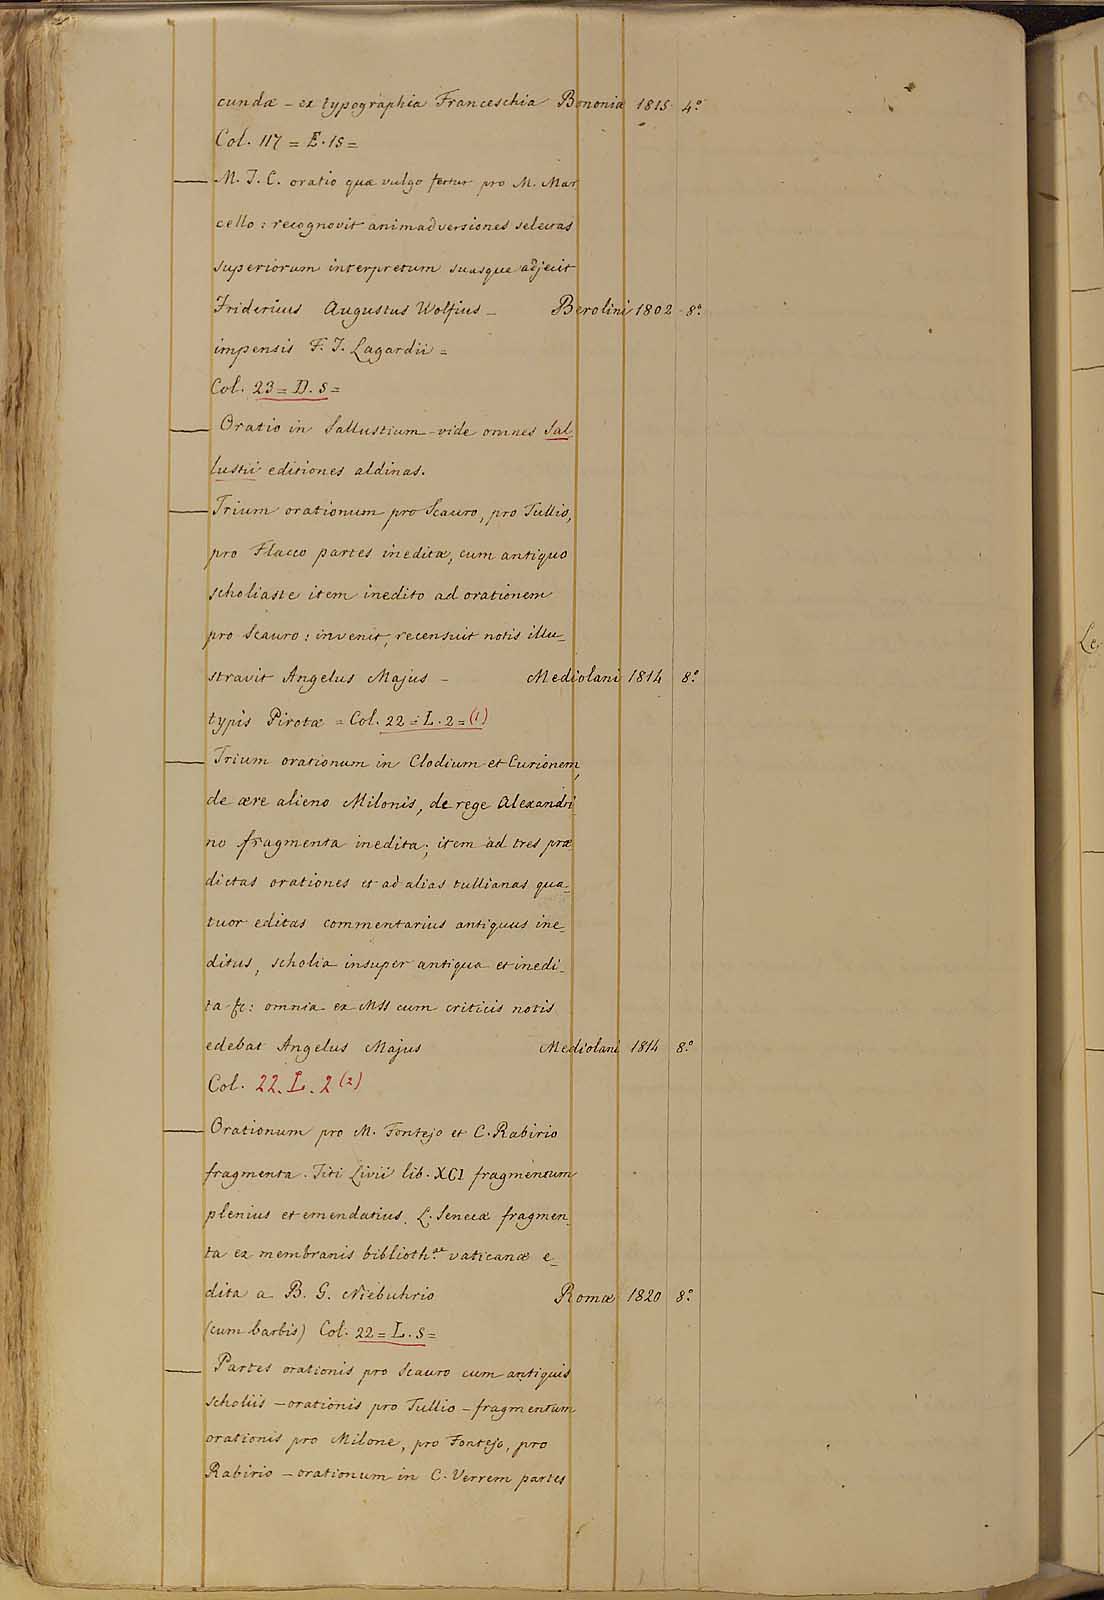 cundæ – ex typographia Franceschia Bononiæ 1815 4.º
Col. 117 = E. 15 =
— M. T. C. oratio quæ vulgo fertur pro M. Mar
cello: recognovit animadversiones selectas
superiorum interpretum suasque adjecit
Fridericus Augustus Wolfius – Berolini 1802 8.º
impensis F. T. Lagardii =
Col. 23 = D. 5 =
— Oratio in Sallustium – vide omnes Sal
lustii editiones aldinas.
— Trium orationum pro Scauro, pro Tullio,
pro Flacco partes ineditæ, cum antiquo
scholiaste item inedito ad orationem
pro Scauro: invenit, recensuit notis illu_
stravit Angelus Majus – Mediolani 1814 8.º
typis Pirotæ = Col. 22 = L. 2 = (1)
— Trium orationum in Clodium et Curionem,
de ære alieno Milonis, de rege Alexandri
no fragmenta inedita; item ad tres præ
dictas orationes et ad alias tullianas qua_
tuor editas commentarius antiquus ine_
ditus, scholia insuper antiqua et inedi_
ta &c: omnia ex MSS cum criticis notis
edebat Angelus Majus Mediolani 1814 8.º
Col. 22. L. 2 (2)
— Orationum pro M. Fontejo et C. Rabirio
fragmenta. Titi Livii lib. XCI fragmentum
plenius et emendatius. L. Senecæ fragmen_
ta ex membranis biblioth.æ vaticanæ e_
dita a B. G. Niebuhrio Romæ 1820 8.º
(cum barbis) Col. 22 = L. 5 =
— Partes orationis pro Scauro cum antiquis
scholiis – orationis pro Tullio – fragmentum
orationis pro Milone, pro Fontejo, pro
Rabirio – orationum in C. Verrem partes